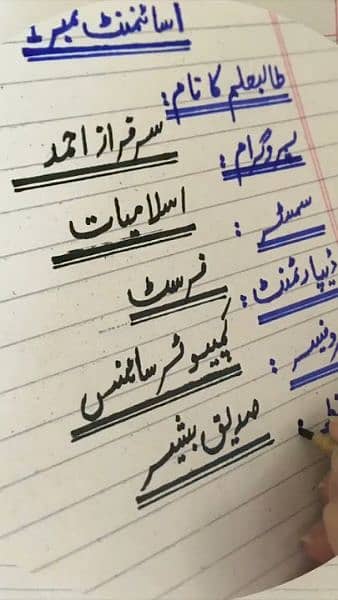 اسائنمنٹ نمبر 1
طالبعلم کا نام:
سرفراز احمد
پروگرام:
اسلامیات
سمسٹر:
فرسٹ
ڈیپارٹمنٹ:
کمپیوٹر سائنس
صدیق بشیر